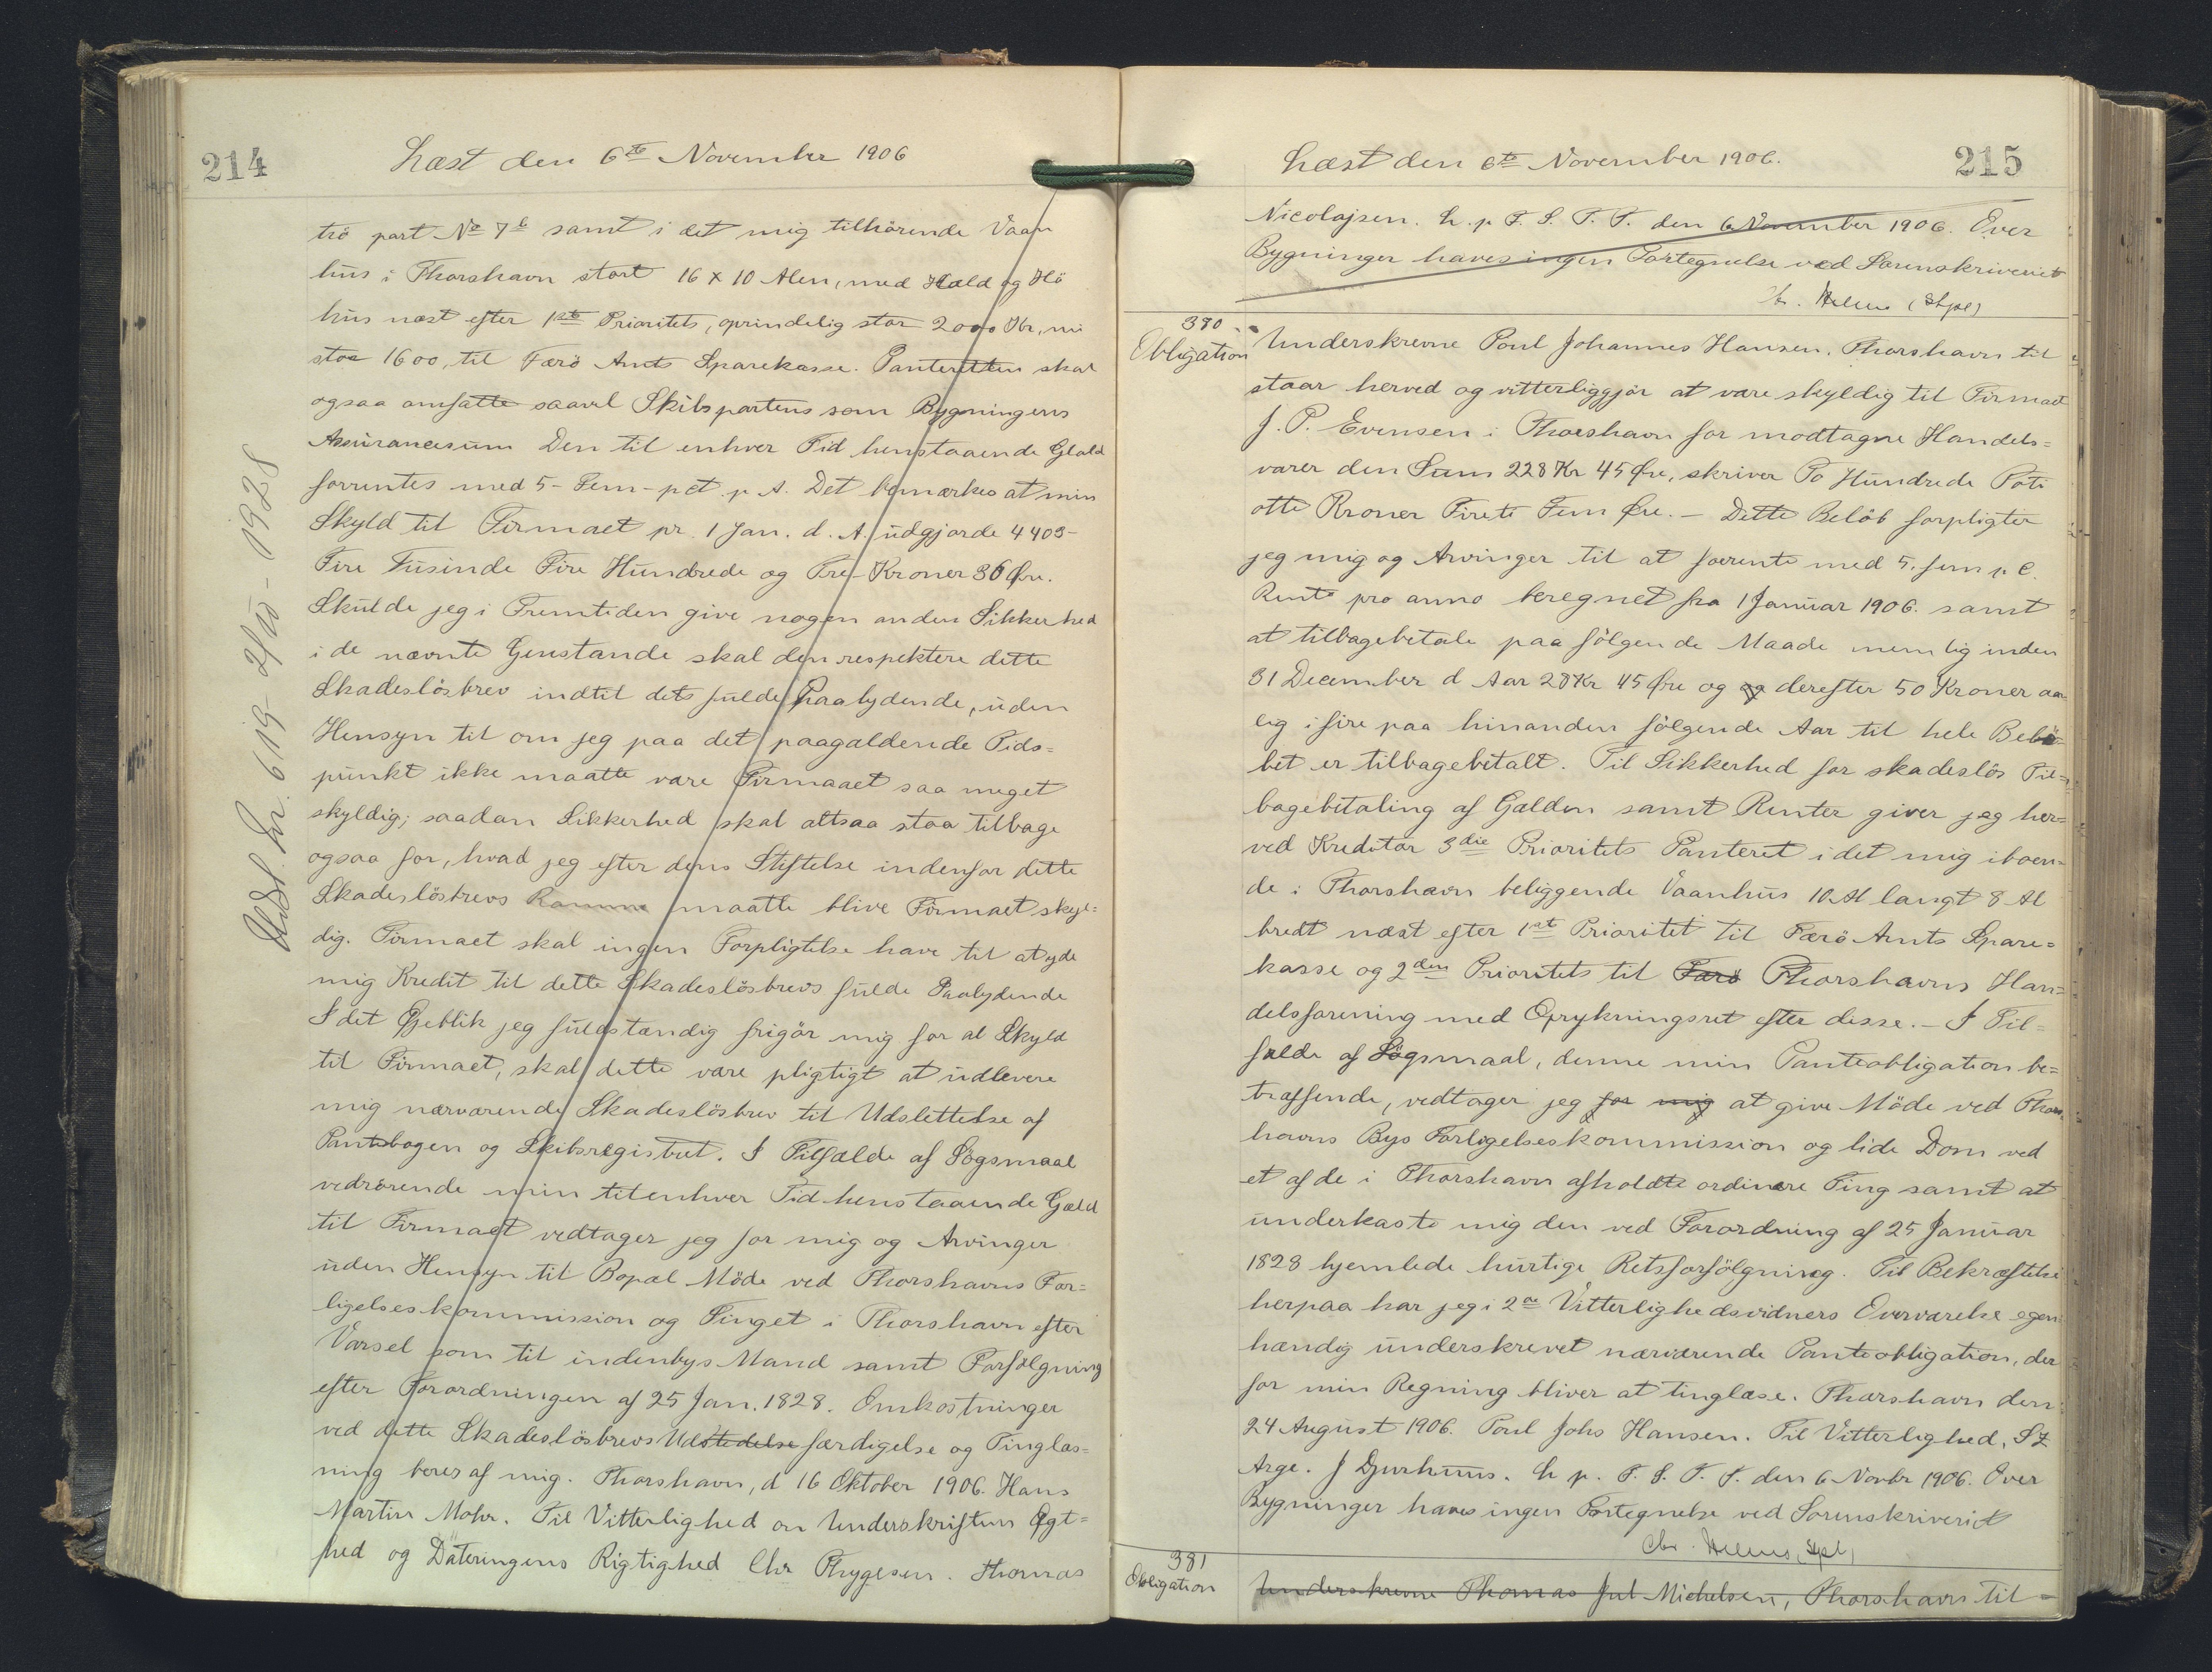 214
Læst den 6te November 1906
trö part No 7b samt i det mig tilhörende Vaan
hus i Thorshavn stort 16 x 10 Alen, med Hald og Hö
hus næst efter 1ste Prioritets, oprindelig stor 2000 Kr, nu
stor 1600, til Færö Amts Sparekasse. Panteretten skal
ogsaa omfatte saavel Skibspartens som Bygningens
Assurancesum Den til enhver Tid henstaaende Gjæld
forrentes med 5 - Fem - pct. p. A. Det bemærkes at min
Skyld til Firmaet pr. 1 Jan. d. A. udgjorde 4403-
Fire Tusinde Fire Hundrede og Tre - Kroner 36 Øre.
Skulde jeg i Fremtiden give nogen anden Sikkerhed
i de nævnte Genstande skal den respektere dette
Skadeslösbrev indtil dets fulde Paalydende, uden
Hensyn til om jeg paa det paagældende Tids=
punkt ikke maatte være Firmaaet saa meget
skyldig; saadan Sikkerhed skal altsaa staa tilbage
ogsaa for, hvad jeg efter dens Stiftelse indenfor dette
Skadeslösbrevs Ramme maatte blive Firmaet skyl=
dig. Firmaet skal ingen Forpligtelse have til at yde
mig Kredit til dette Skadeslösbrevs fulde Paalydende
I det Øjeblik jeg fuldstændig frigör mig for al Skyld
til Firmaet, skal dette være pligtigt at udlevere
mig nærværende Skadeslösbrev til Udslettelse af
Pantebogen og Skibsregistret. I Tilfælde af Sögsmaal
vedrörende min til enhver Tid henstaaende Gæld
til Firmaet vedtager jeg for mig og Arvinger
uden Hensyn til Bopæl Möde ved Thorshavns For=
ligelseskommission og Tinget i Thorshavn efter
Varsel som til indenbys Mand samt Forfølgning
efter Forordningen af 25 Jan. 1828. Omkostninger
ved dette Skadeslösbrevs Udstedelse færdigelse og Tinglæs=
ning beres af mig. Thorshavn, d 16 Oktober 1906. Hans
Martin Mohr. Til Vitterlighed om Underskriftens Ægt=
hed og Dateringens Rigtighed Chr Thygesen. Thomas
Udsl. Lr. 619 - 2/10 - 1928
Læst den 6te November 1906.
215
Nicolajsen. L. p T. S. T. T. den 6 November 1906. Over
Bygninger haves ingen Fortegnelse ved Sorenskriveriet
Chr. Helms (Stpl)
380
Obligation
Underskrevne Poul Johannes Hansen, Thorshavn til
staar herved og vitterliggjör at være skyldig til Firmaet
J. P. Evensen i Thorshavn for modtagne Handels=
varer den Sum 228 Kr 45 Øre, skriver To Hundrede Toti
otte Kroner Fireti Fem Øre. - Dette Belöb forpligter
jeg mig og Arvinger til at forrente med 5. fem p. C.
Rente pro anno beregnet fra 1 Januar 1906. samt
at tilbagebetale paa fölgende Maade nemlig inden
31 December d Aar 28 Kr 45 Øre og og derefter 50 Kroner aar
lig i fire paa hinanden fölgende Aar til hele Belö
bet er tilbagebetalt. Til Sikkerhed for skadeslös Til=
bagebetaling af Gælden samt Renter giver jeg her=
ved Kreditor 3die Prioritets Panteret i det mig iboen=
de i Thorshavn beliggende Vaanhus 10 Al langt 8 Al
bredt næst efter 1ste Prioritet til Færö Amts Spare=
kasse og 2den Prioritets til Færö Thorshavns Han=
delsforening med Oprykningsret efter disse. - I Til=
fælde af Sögsmaal, denne min Panteobligation be=
træffende, vedtager jeg for mig at give Möde ved Thors
havns Bys Forligelseskommission og lide Dom ved
et af de i Thorshavn afholdte ordinære Ting samt at
underkaste mig den ved Forordning af 25 Januar
1828 hjemlede hurtige Retsforfölgning. Til Bekræftelse
herpaa har jeg i 2de Vitterlighedsvidners Overværelse egen
hændig underskrevet nærværende Panteobligation, der
for min Regning bliver at tinglæse. Thorshavn den
24 August 1906. Poul Johs Hansen. Til Vitterlighed, S Z
Arge. J Djurhuus. L p. T. S. T. T. den 6 Novbr 1906. Over
Bygninger haves ingen Fortegnelse ved Sorenskriveriet
Chr. Helms, Stpl)
381
Obligation
Underskrevne Thomas Jul Michelsen, Thorshavn til=